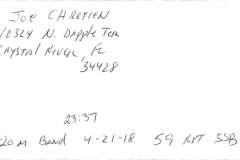 JOE CHRETIEN
10324 N. Dapple Ter
CRYSTAL RIVER, FL
34428
23:37
20m Band 4-21-18 59 RPT SSB